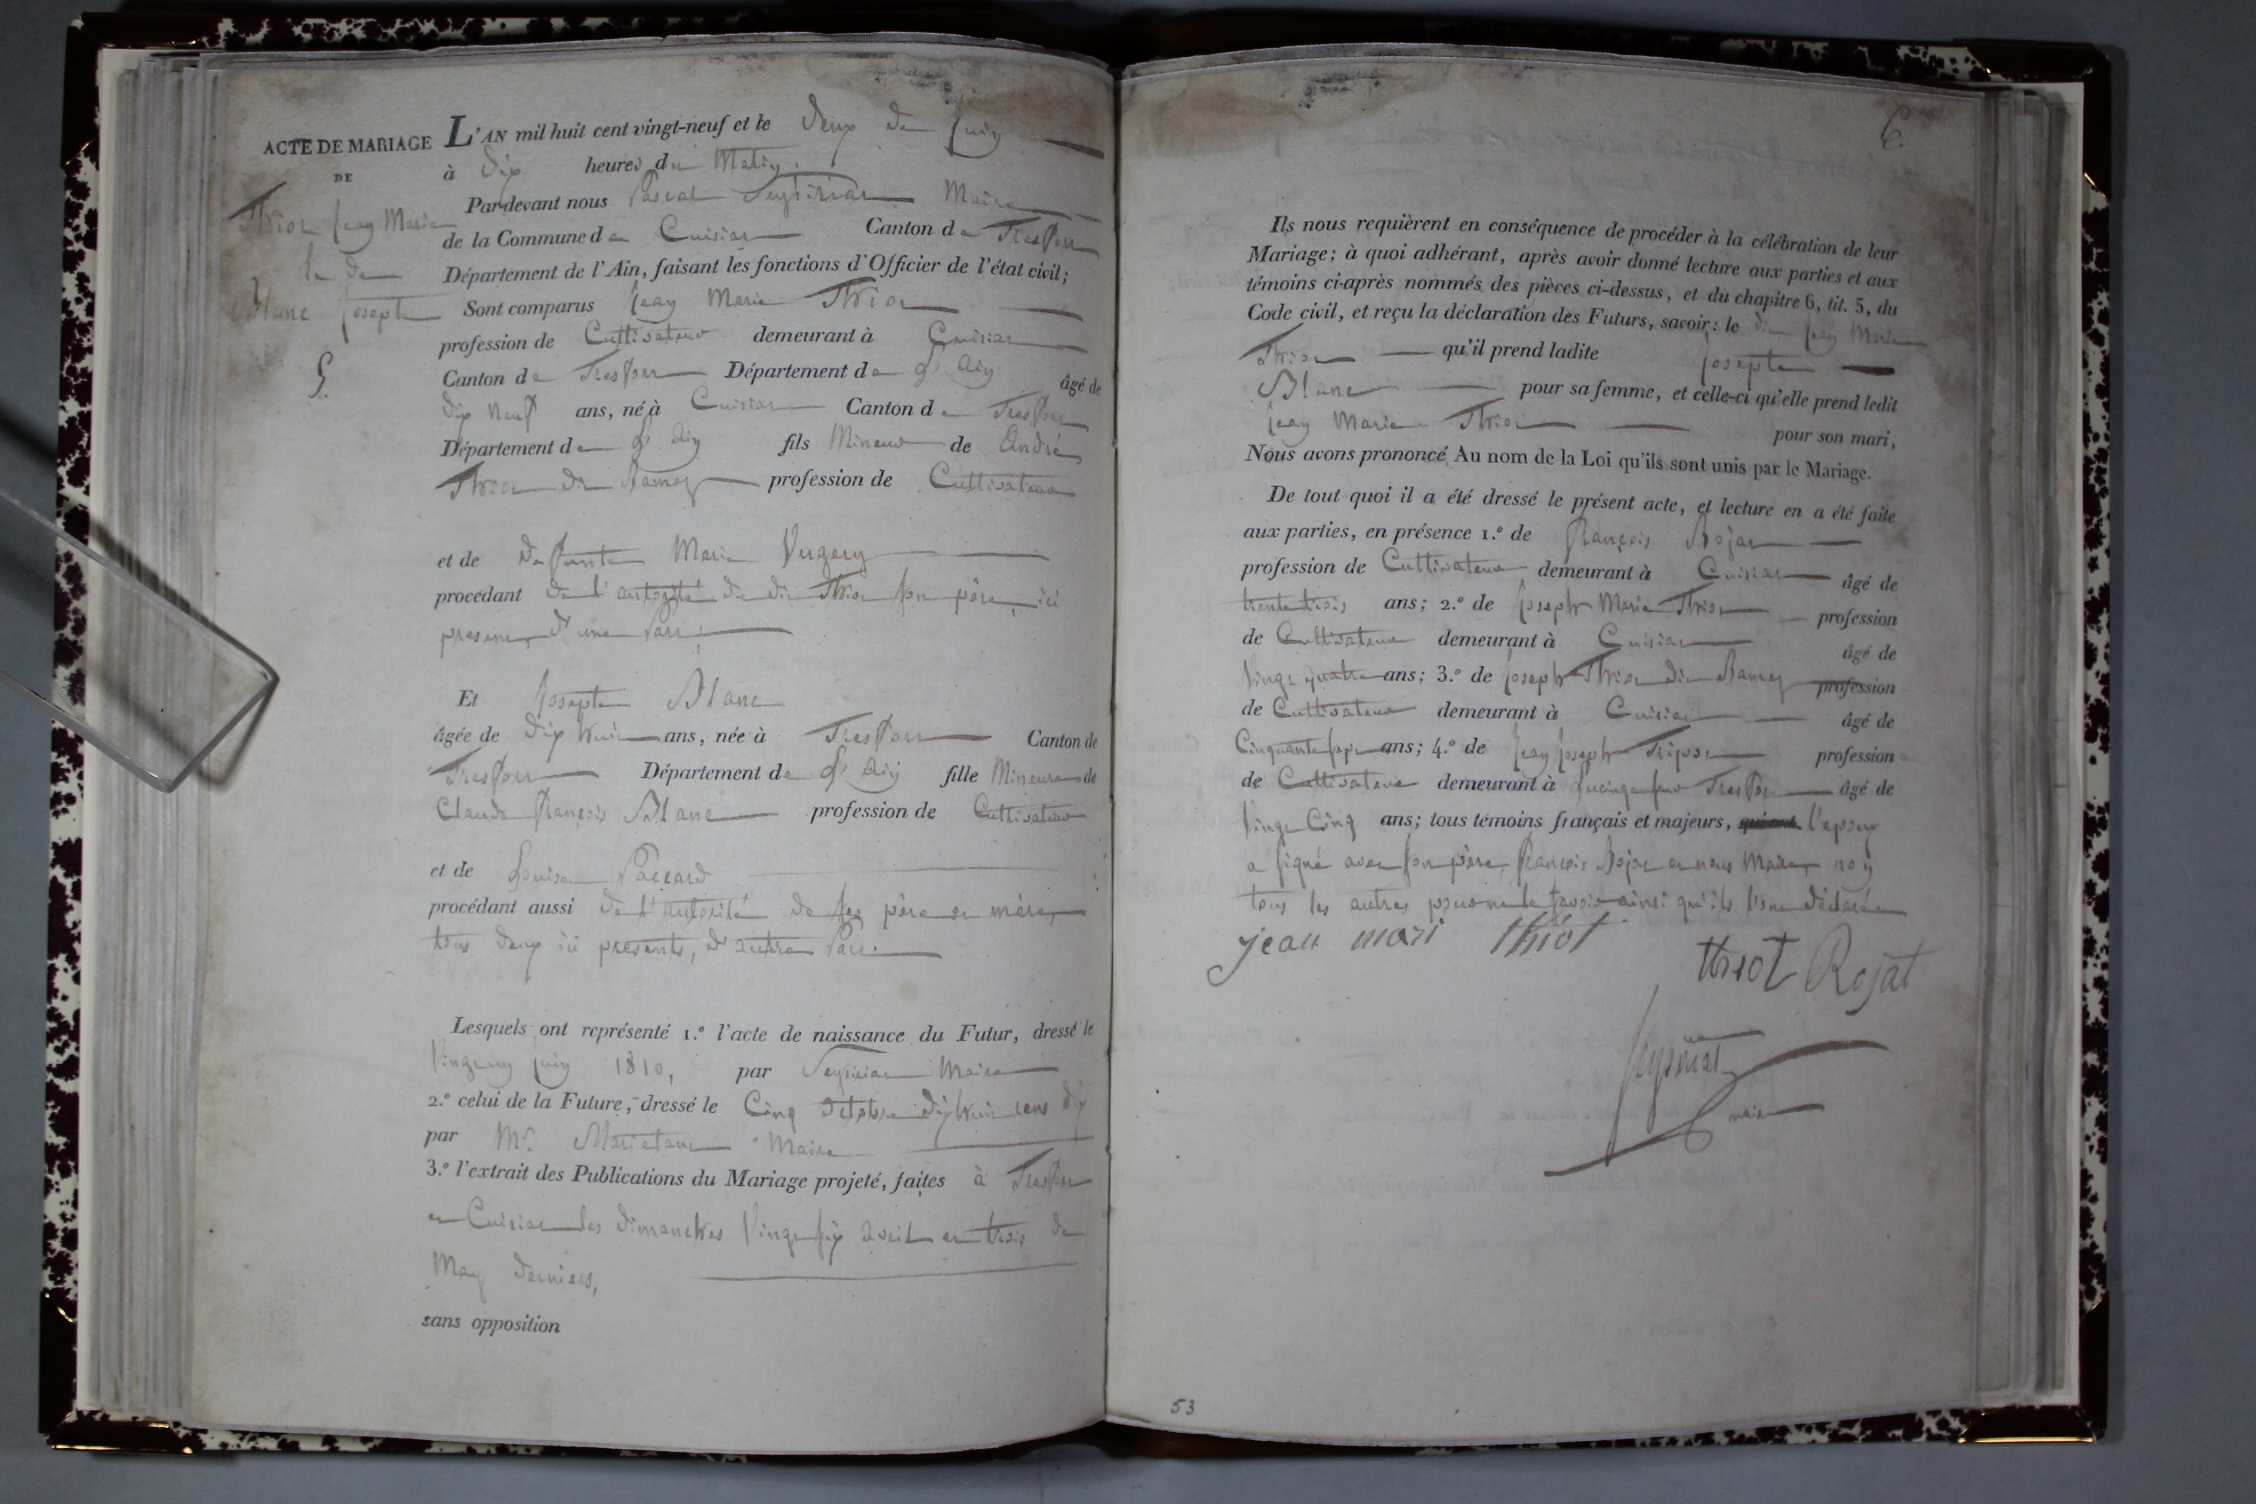 ACTE DE MARIAGE
DE
Thiot Jean Marie
Blanc Josepte
5.
L'AN mil huit cent vingt-neuf et le deux de Juin
à dix heures du Matin.
Pardevant nous Pascal Seysiriat Maire
de la Commune de Cuisiat Canton de Treffort
Département de l'Ain, faisant les fonctions d'Officier de l'état civil;
Sont comparus Jean Marie Thiot
profession de Cultivateur demeurant à Cuisiat
Canton de Treffort Département de l'Ain âgé de
dix neuf ans, né à Cuisiat Canton de Treffort
Département de l'Ain fils Mineur de André
Thiot dit Ramoz profession de Cultivateur
et de defunte Marie
procédant de l'autorité du dit Thiot son père, ici
present, d'une Part;
Et Josepte Blanc
âgée de dix huit ans, née à Treffort Canton de
Treffort Département de l'Ain fille Mineure de
Claude François Blanc profession de Cultivateur
et de Louise Paccard
procédant aussi de l'autorité de ses père et mère,
tous deux ici presents, d'autre Part.
Lesquels ont représenté 1.º l'acte de naissance du Futur, dressé le
Vingt un Juin 1810, par Seysiriat Maire
2.º celui de la Future, dressé le Cinq Octobre dix huit cent dix
par Mr. Maire
3.º l'extrait des Publications du Mariage projeté, faites à Treffort
et Cuisiat les dimanches Vingt six avril et trois de
May derniers,
sans opposition
6.
Ils nous requièrent en conséquence de procéder à la célébration de leur
Mariage; à quoi adhérant, après avoir donné lecture aux parties et aux
témoins ci-après nommés des pièces ci-dessus, et du chapitre 6, tit. 5, du
Code civil, et reçu la déclaration des Futurs, savoir: le dit Jean Marie
Thiot qu'il prend ladite Josepte
Blanc pour sa femme, et celle-ci qu'elle prend ledit
Jean Marie Thiot pour son mari,
Nous avons prononcé Au nom de la Loi qu'ils sont unis par le Mariage.
De tout quoi il a été dressé le présent acte, et lecture en a été faite
aux parties, en présence 1.º de François Rojat
profession de Cultivateur demeurant à Cuisiat âgé de
trente trois ans; 2.º de Joseph Marie Thiot profession
de Cultivateur demeurant à Cuisiat âgé de
Vingt quatre ans; 3.º de Joseph Thiot dit Ramoz profession
de Cultivateur demeurant à Cuisiat âgé de
Cinquante sept ans; 4.º de Jean Joseph profession
de Cultivateur demeurant à Treffort âgé de
Vingt Cinq ans; tous témoins français et majeurs, qui ont l'epoux
a signé avec son père, François Rojat et nous Maire, non
tous les autres pour ne le savoir ainsi qu'ils l'ont déclaré
jean mari thiot
thiot Rojat
Seysiriat
maire
53